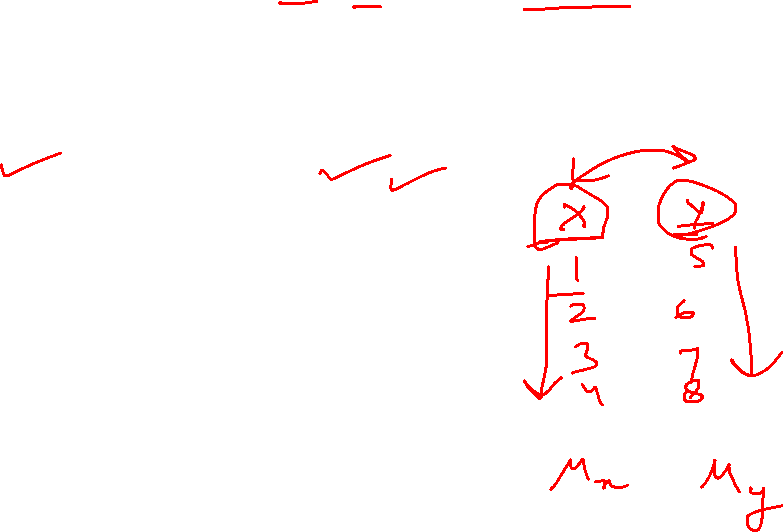 X Y
1 5
2 6
3 7
4 8
μx μy